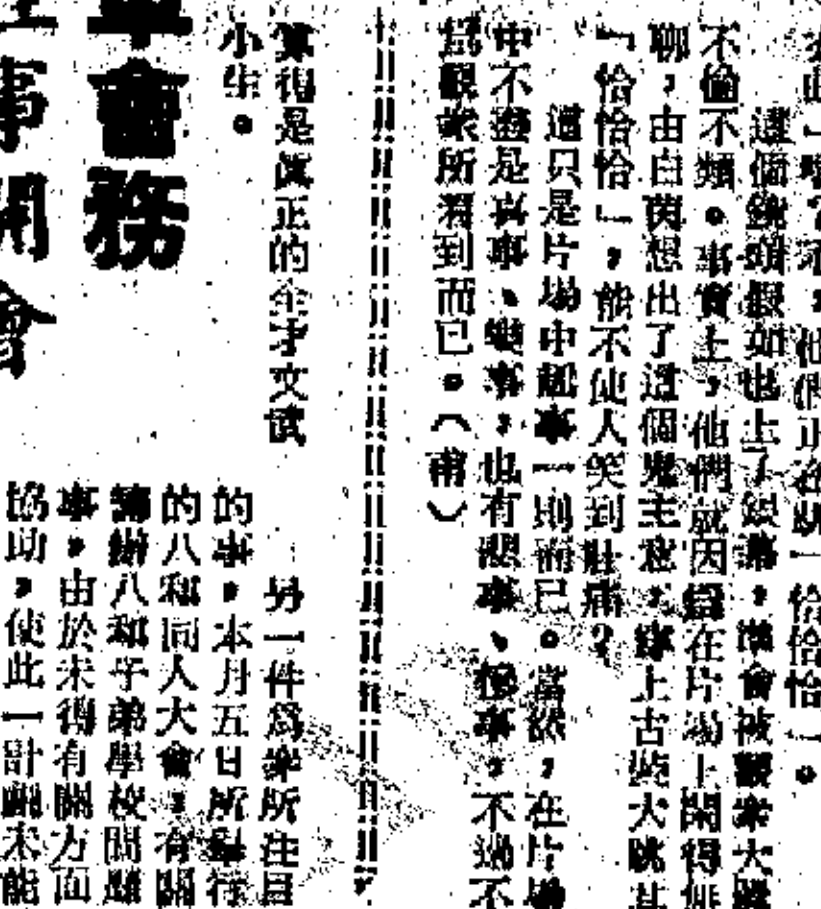 他們正在跳「恰恰恰」。
這個鏡頭假如也上了銀幕,準會被觀眾大
不倫不類。事實上,他們就因爲在片場上閑得無
聊,由白茵想出了這個鬼主意,穿上古裝大跳其
「恰恰恰」,能不使人笑到肚痛?
這只是片場中趣事一則而已。當然,在片場
中不盡是喜事、樂事,也有悲事、慘事,不過不
爲觀衆所看到而已。(甫)
算得是眞正的全才文武
小生。
會務
事開會
另一件爲衆所注目
的事,本月五日所舉行
的八和同人大會,有關
籌辦八和子弟學校問題
事,由於未得有關方面
協助,使此一計劃未能